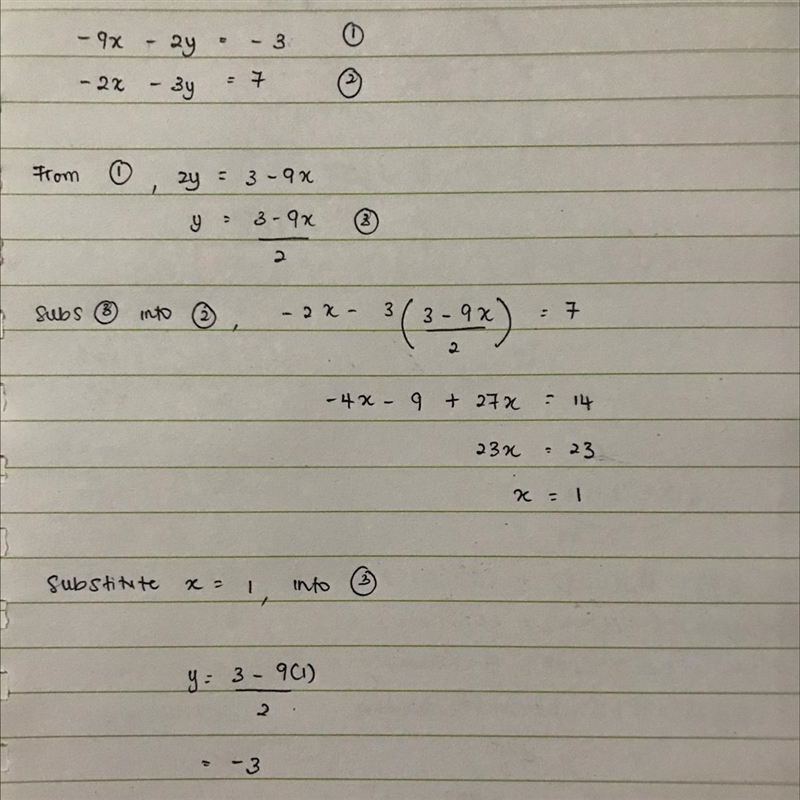 -9x - 2y = -3 ①
-2x - 3y = 7 ②
From ①, 2y = 3 - 9x
y = (3 - 9x)/2 ③
Subs ③ into ②, -2x - 3((3 - 9x)/2) = 7
-4x - 9 + 27x = 14
23x = 23
x = 1
Substitute x = 1, into ③
y = (3 - 9(1))/2
= -3